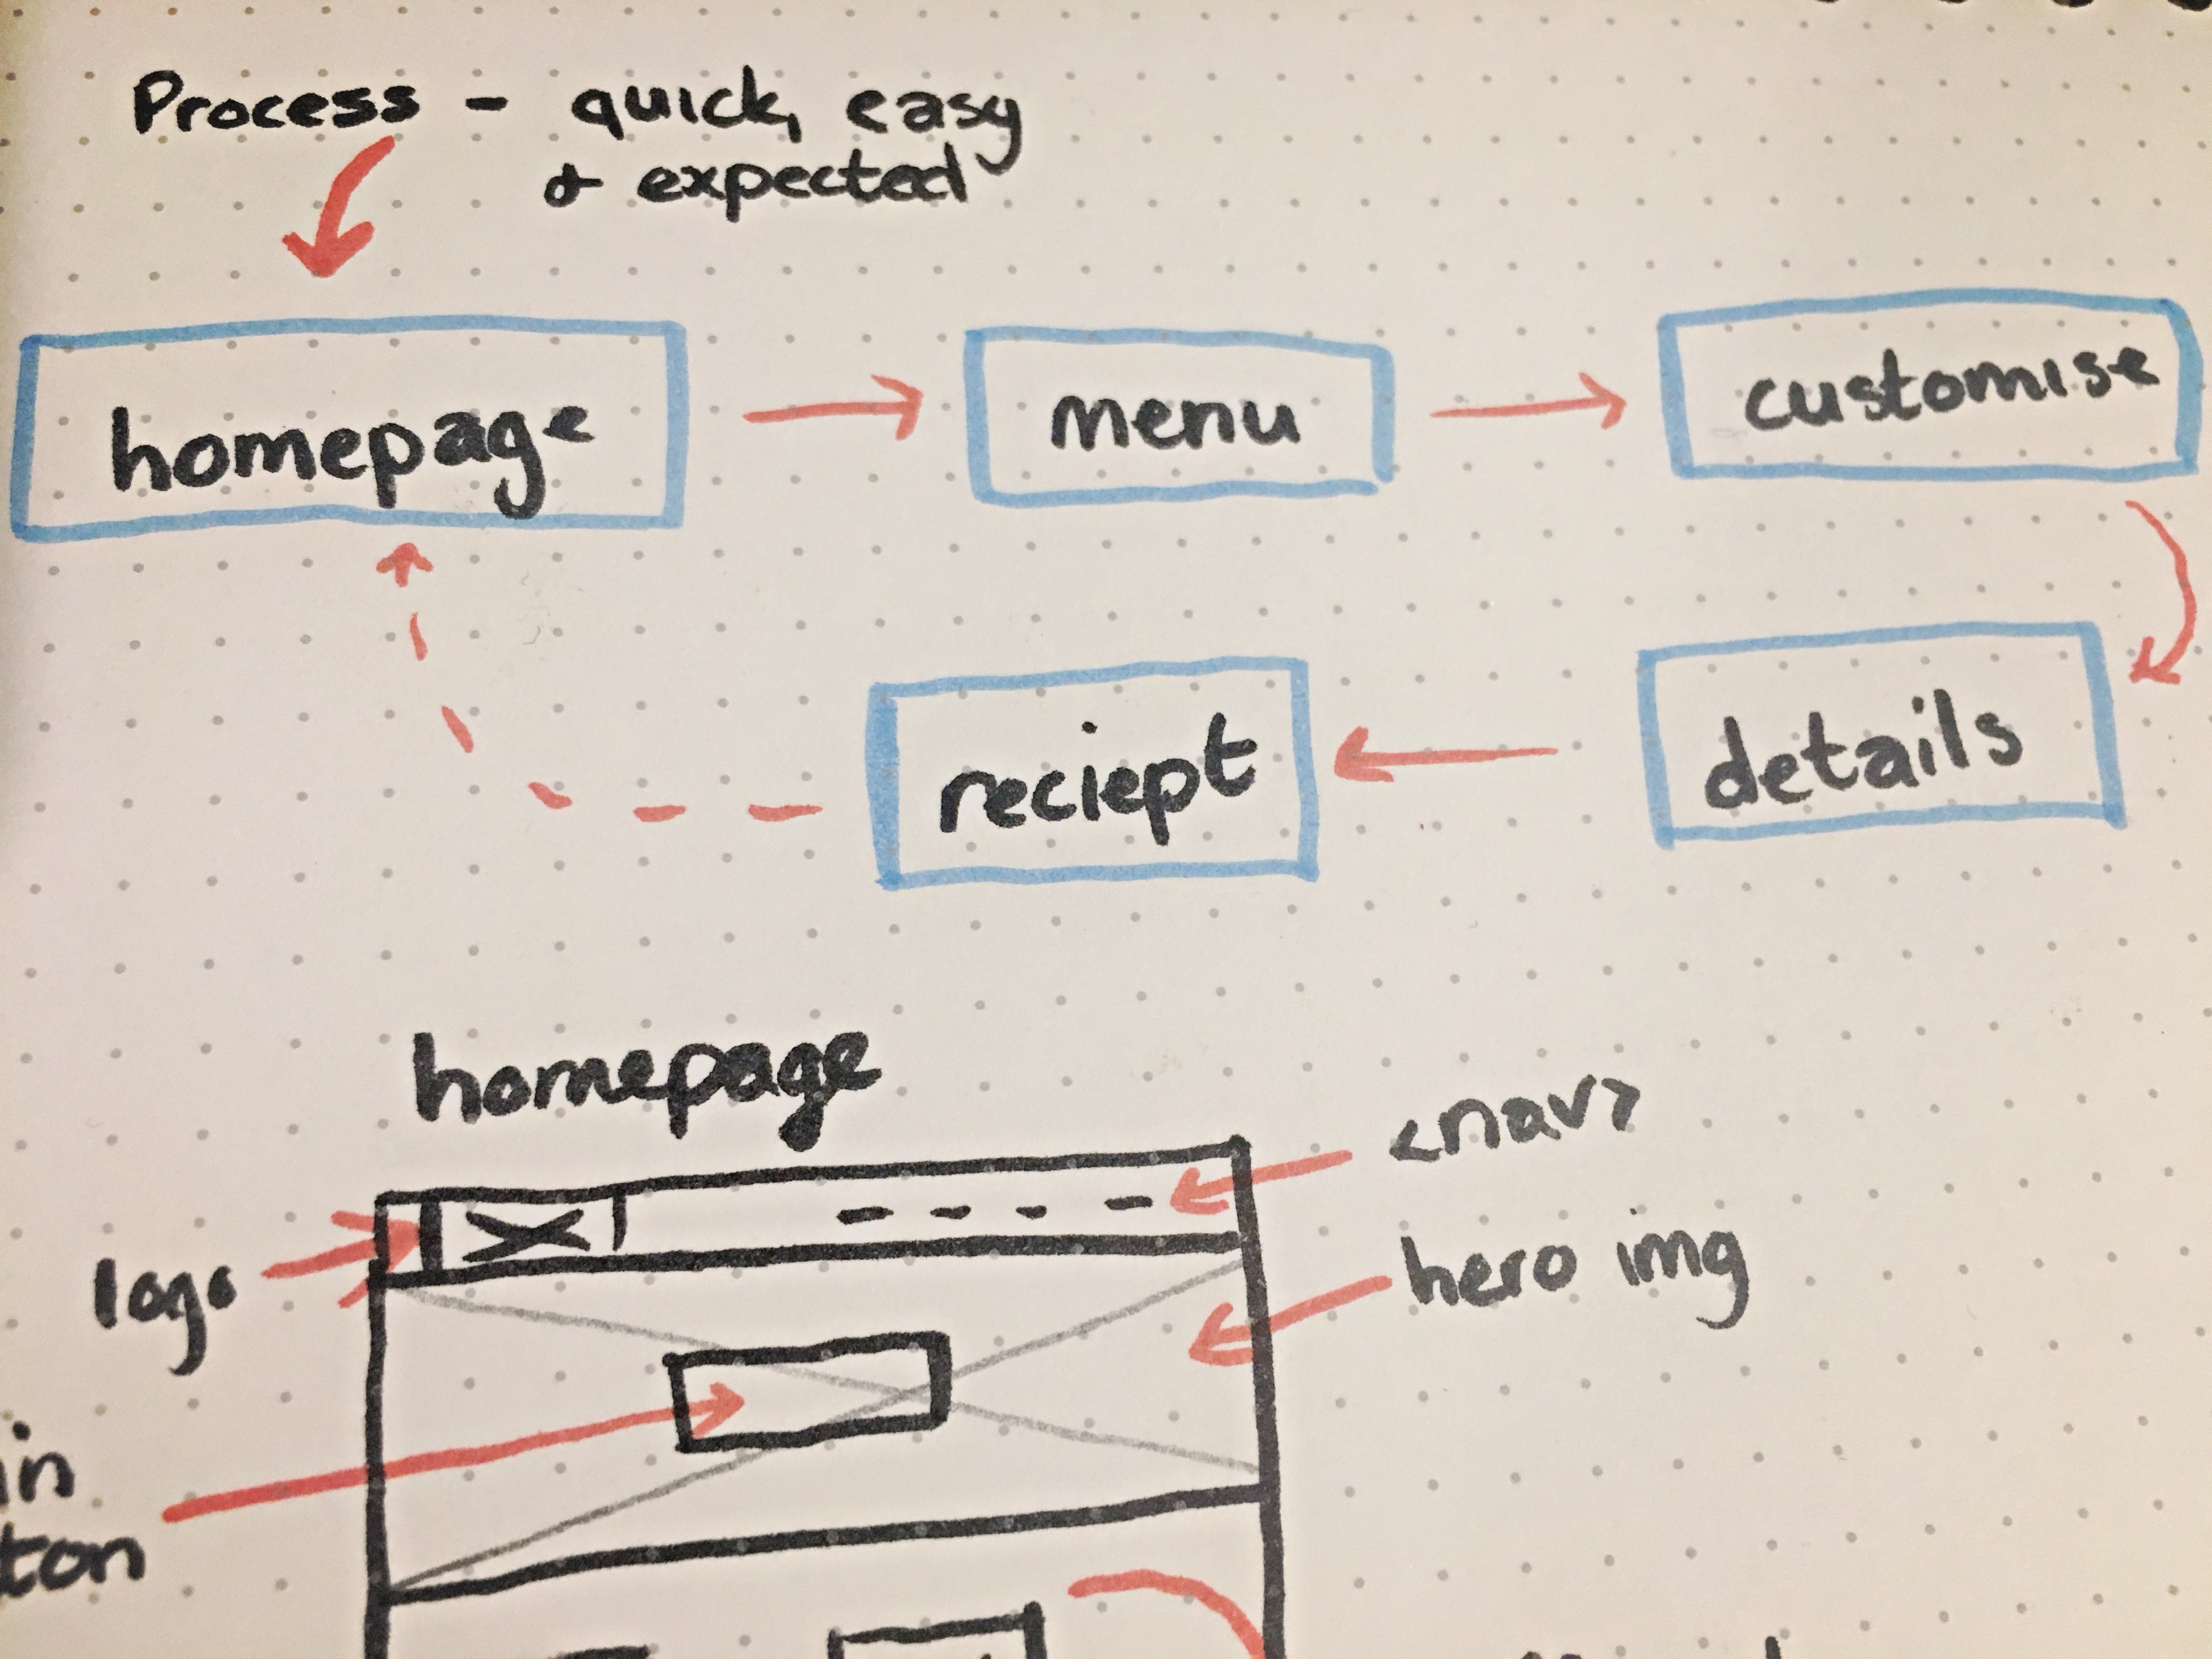 Process - quick, easy
& expected
homepage
menu
customise
details
reciept
homepage
<nav>
logo
hero img